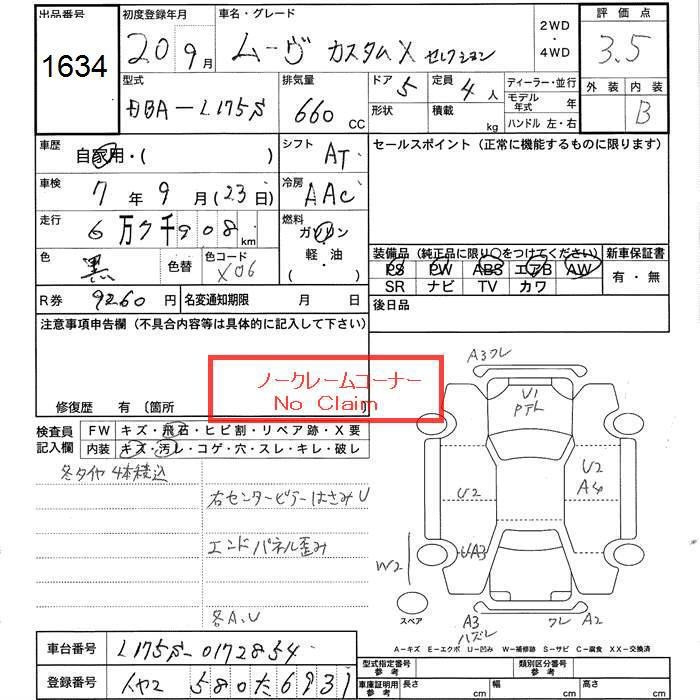 出品番号
1634
初度登録年月
20 9月
車名・グレード
ムーヴ カスタムX セレクション
2WD
・
4WD
評価点
3.5
型式
DBA-L175S
排気量
660 CC
ドア 5
形状
定員 4 人
積載 kg
ディーラー・並行
モデル年式 年
ハンドル 左・右
外装 内装
B
車歴 自家用・( )
シフト AT
セールスポイント(正常に機能するものに限ります)
車検 7年 9月(23日)
冷房 AAC
走行 6万7千908km
燃料 ガソリン・軽・油 ( )
色 黒 色替 色コード X06
装備品(純正品に限り○をつけてください)
新車保証書
PS PW ABS エアB AW
SR ナビ TV カワ
有・無
R券 9260円 名変通知期限 月 日
後日品
注意事項申告欄(不具合内容等は具体的に記入して下さい)
ノークレームコーナー
No Claim
修復歴 有 〔箇所
検査員記入欄
FW キズ・飛石・ヒビ割・リペア跡・X要
内装 キズ・汚レ・コゲ・穴・スレ・キレ・破レ
冬タイヤ4本積込
右センターピラーはさみU
エンドパネル歪み
各A、U
A3フレ
U1
PアL
U2
U2
A4
UA3
W2
スペア
A3
ハズレ
フレ A2
A-キズ E-エクボ U-凹み W-補修跡 S-サビ C-腐食 XX-交換済
車台番号 L175S-0172854
登録番号 580た6931
型式指定番号 参考
類別区分番号 参考
車庫証明用 参考
長さ cm
幅 cm
高さ cm